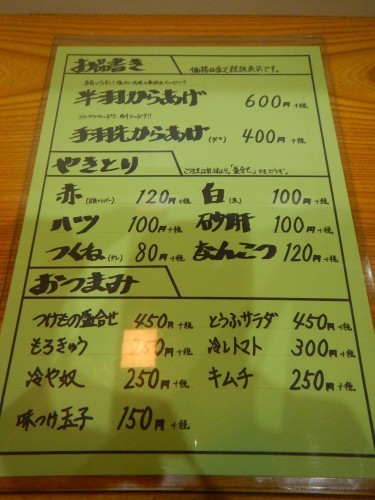 お品書き 価格は全て税抜表示です。
半羽からあげ 600円+税
手羽先からあげ 400円+税
やきとり
赤 120円+税 白 100円+税
ハツ 100円+税 砂肝 100円+税
つくね(タレ) 80円+税 なんこつ 120円+税
おつまみ
つけもの盛合せ 450円+税 とうふサラダ 450円+税
もろきゅう 250円+税 冷しトマト 300円+税
冷や奴 250円+税 キムチ 250円+税
味つけ玉子 150円+税